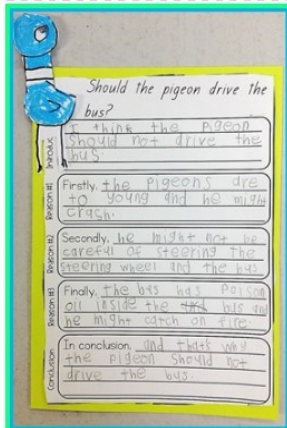 Should the pigeon drive the
bus?
Introduc
I think the pigeon
should not drive the
bus.
Reason #1
Firstly, the pigeons are
to young and he might
crash.
Reason #2
Secondly, he might not be
careful of steering the
steering wheel and the bus
Reason #3
Finally, the bus has poison
oil inside the bus and
he might catch on fire.
Conclusion
In conclusion, and that's why
the pigeon should not
drive the bus.